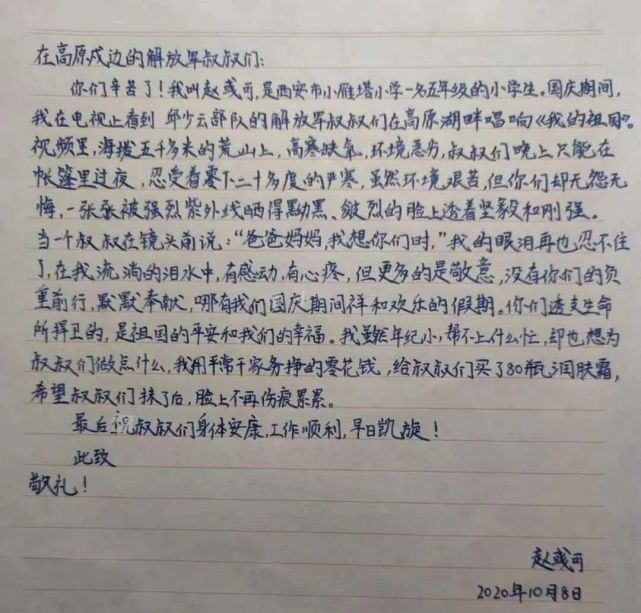 在高原戍边的解放军叔叔们:
你们辛苦了!我叫赵彧可,是西安市小雁塔小学一名五年级的小学生。国庆期间,
我在电视上看到邱少云部队的解放军叔叔们在高原湖畔唱响《我的祖国》。
视频里,海拔五千多米的荒山上,高寒缺氧,环境恶劣,叔叔们晚上只能在
帐篷里过夜,忍受着零下二十多度的严寒,虽然环境艰苦,但你们却无怨无
悔,一张张被强烈紫外线晒得黝黑、皴裂的脸上透着坚毅和刚强。
当一个叔叔在镜头前说:“爸爸妈妈,我想你们时,”我的眼泪再也忍不住
了,在我流淌的泪水中,有感动,有心疼,但更多的是敬意,没有你们的负
重前行,默默奉献,哪有我们国庆期间祥和欢乐的假期。你们透支生命
所捍卫的,是祖国的平安和我们的幸福。我虽然年纪小,帮不上什么忙,却也想为
叔叔们做点什么,我用平常干家务挣的零花钱,给叔叔们买了80瓶润肤霜,
希望叔叔们抹了后,脸上不再伤痕累累。
最后祝叔叔们身体安康,工作顺利,早日凯旋!
此致
敬礼!
赵彧可
2020年10月8日